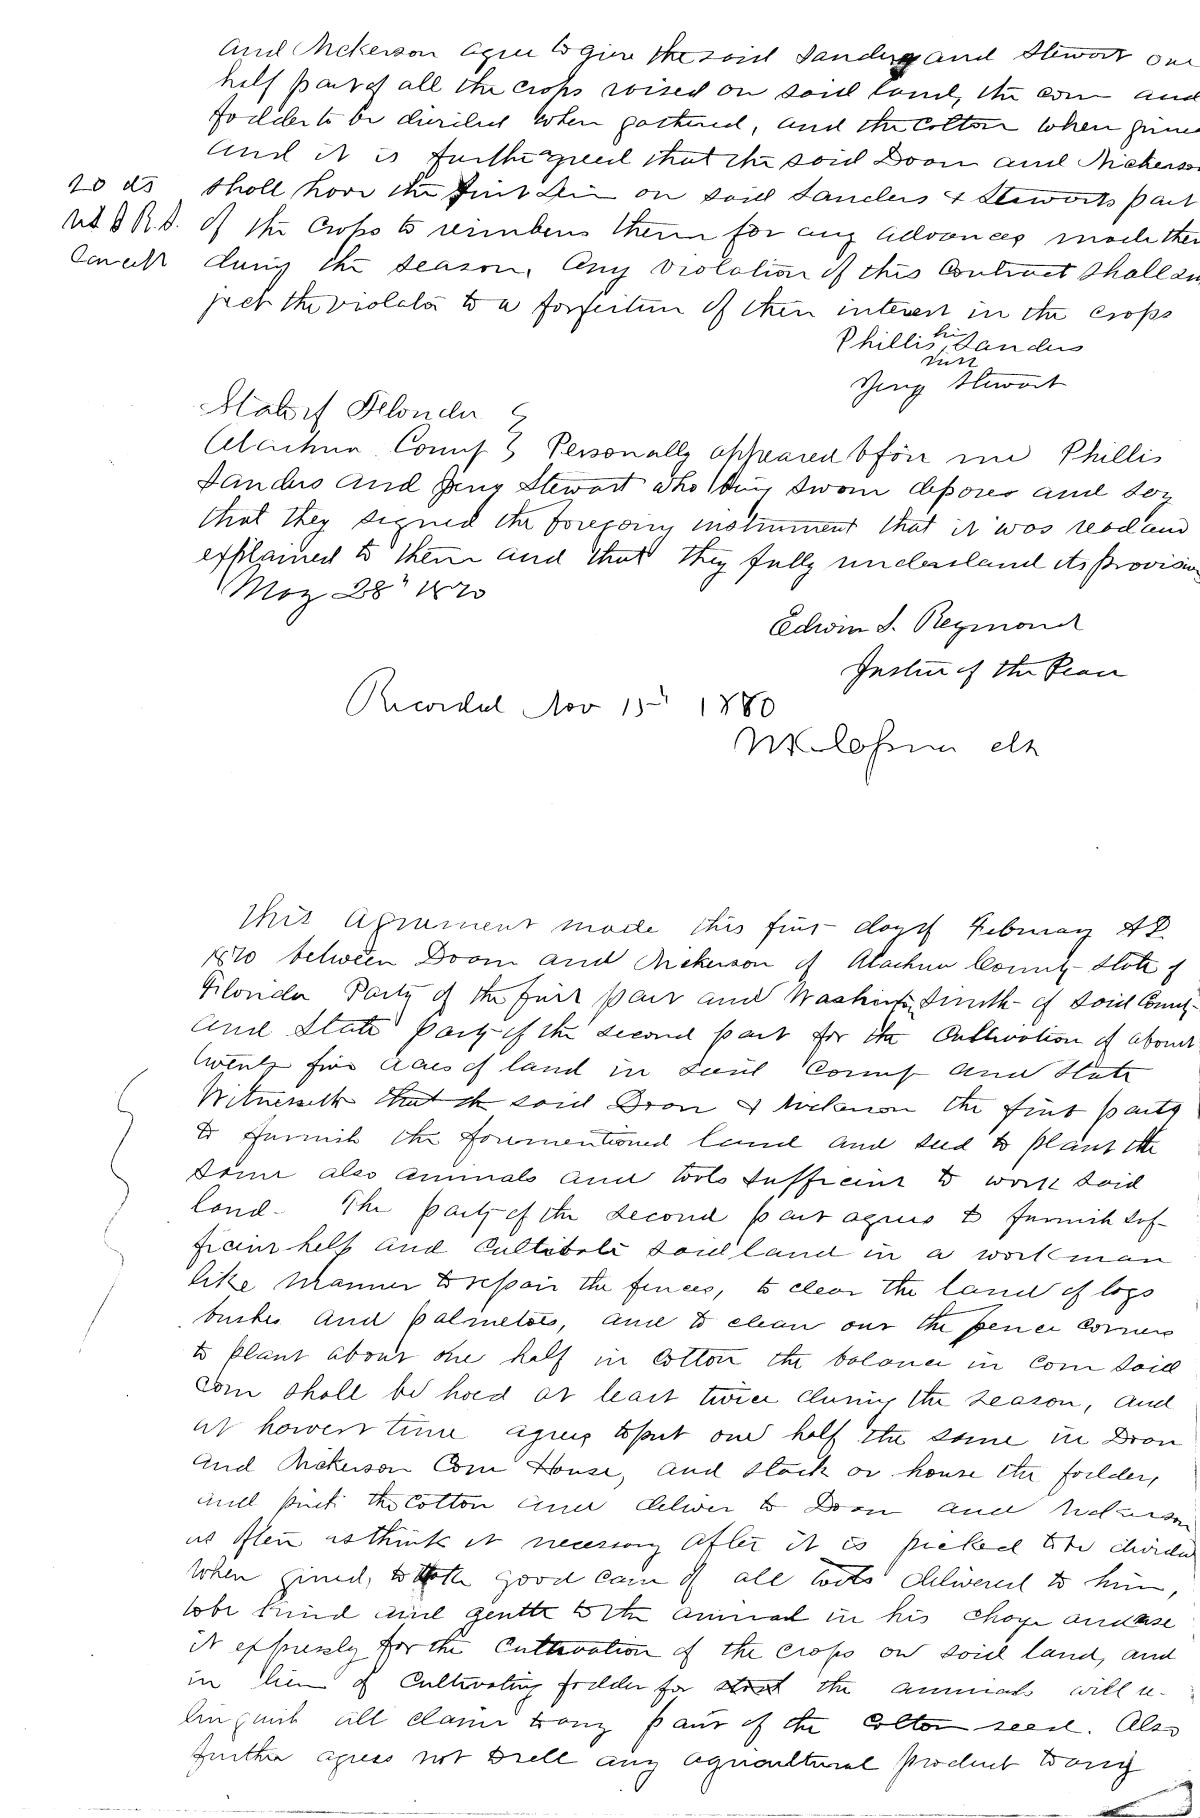 and Nickerson agree to give the said Sanders and Stewart one
half part of all the crops raised on said land, the corn and
fodder to be divided when gathered, and the cotton when ginned
and it is further agreed that the said Doom and Nickerson
20 cts shall have the first Lien on said Sanders & Stewarts part
of the crops to reimburs them for any advances made them
during the season, Any violation of this Contract shall sub
ject the violator to a forfeiture of their interest in the crops
Phillis his Sanders
Jerry Stewart
State of Florida
Alachua County } Personally appeared before me Phillis
Sanders and Jerry Stewart who being sworn deposes and say
that they signed the foregoing instrument that it was read and
explained to them and that they fully understand its provision
May 28" 1870
Edwin S. Reymond
Justice of the Peace
Recorded Nov 15" 1880
clk
This agreement made this first day of February AD
1870 between Doom and Nickerson of Alachua County State of
Florida Party of the first part and Washington Smith of said County
and State party of the second part for the Cultivation of about
twenty five acres of land in said County and State
Witnesseth that th said Doom & Nickerson the first party
to furnish the forementioned land and seed to plant the
same also animals and tools sufficient to work said
land. The party of the second part agrees to furnish suf-
ficient help and Cultivate said land in a workman
like manner to repair the fences, to clear the land of logs
bushes and palmetoes, and to clean out the fence corners
to plant about one half in cotton the balance in corn said
corn shall be hoed at least twice during the season, and
at harvest time agrees to put one half the same in Doom
and Nickerson Corn House, and stack or house the fodder,
and pick the cotton and deliver to Doom and Nickerson
as often as think it necessary after it is picked to be divided
when gined, to take good care of all tools delivered to him,
to be kind and gentle to the animal in his charge and use
it expressly for the Cultivation of the crops on said land, and
in lieu of Cultivating fodder for the animals will re-
linquish all claim to any part of the cotton seed. Also
further agrees not to sell any agricultural product to any